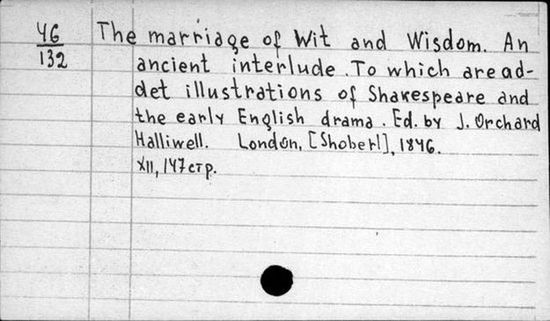 46
132
The marriage of Wit and Wisdom. An
ancient interlude. To which are ad-
det illustrations of Shakespeare and
the early English drama. Ed. by J. Orchard
Halliwell. London, [Shoberl], 1846.
XII, 147 стр.